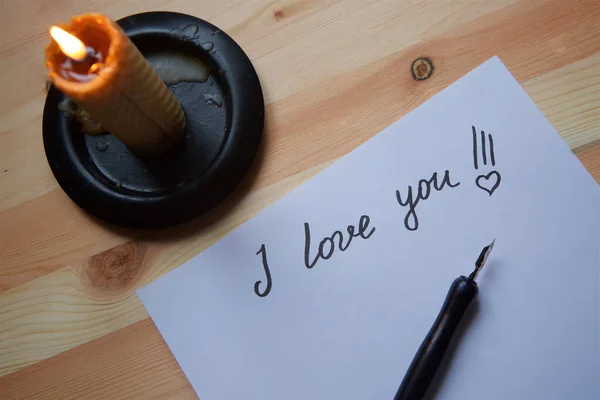 I love you !!!